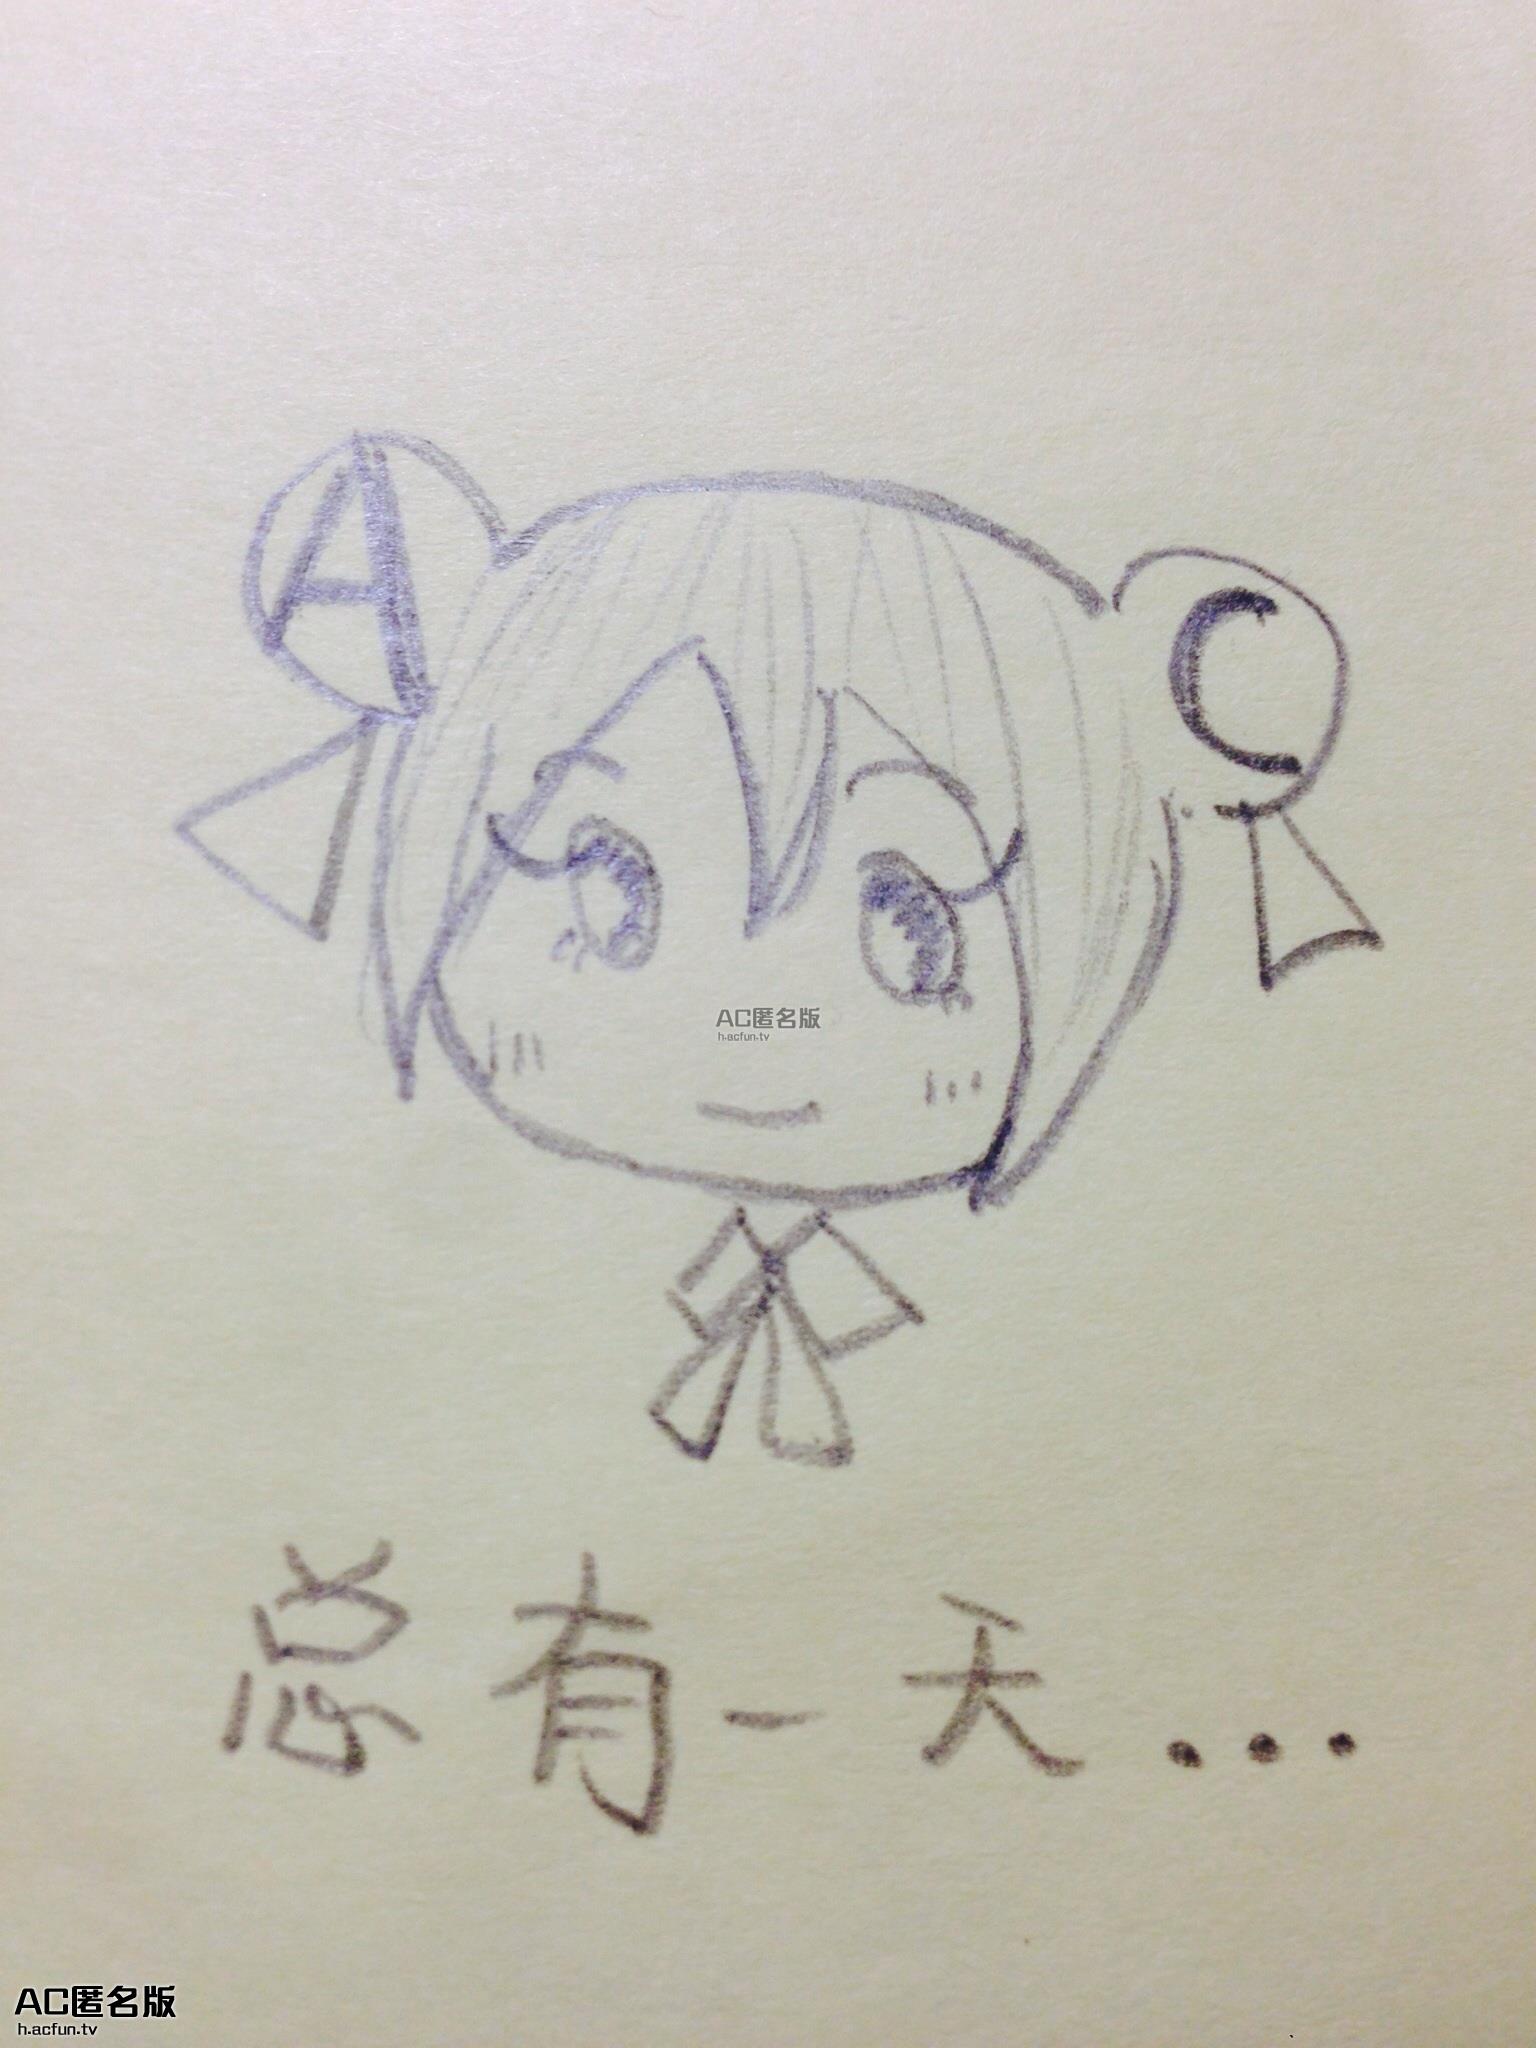 A
C
AC匿名版
h.acfun.tv
总有一天...
AC匿名版
h.acfun.tv